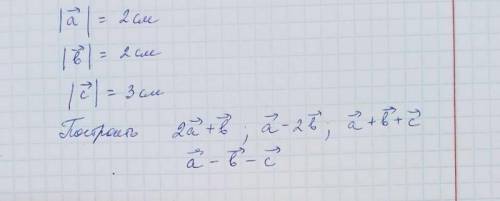 |a⃗| = 2см
|b⃗| = 2см
|c⃗| = 3см
Построить 2a⃗ + b⃗ ; a⃗ - 2b⃗ ; a⃗ + b⃗ + c⃗
a⃗ - b⃗ - c⃗